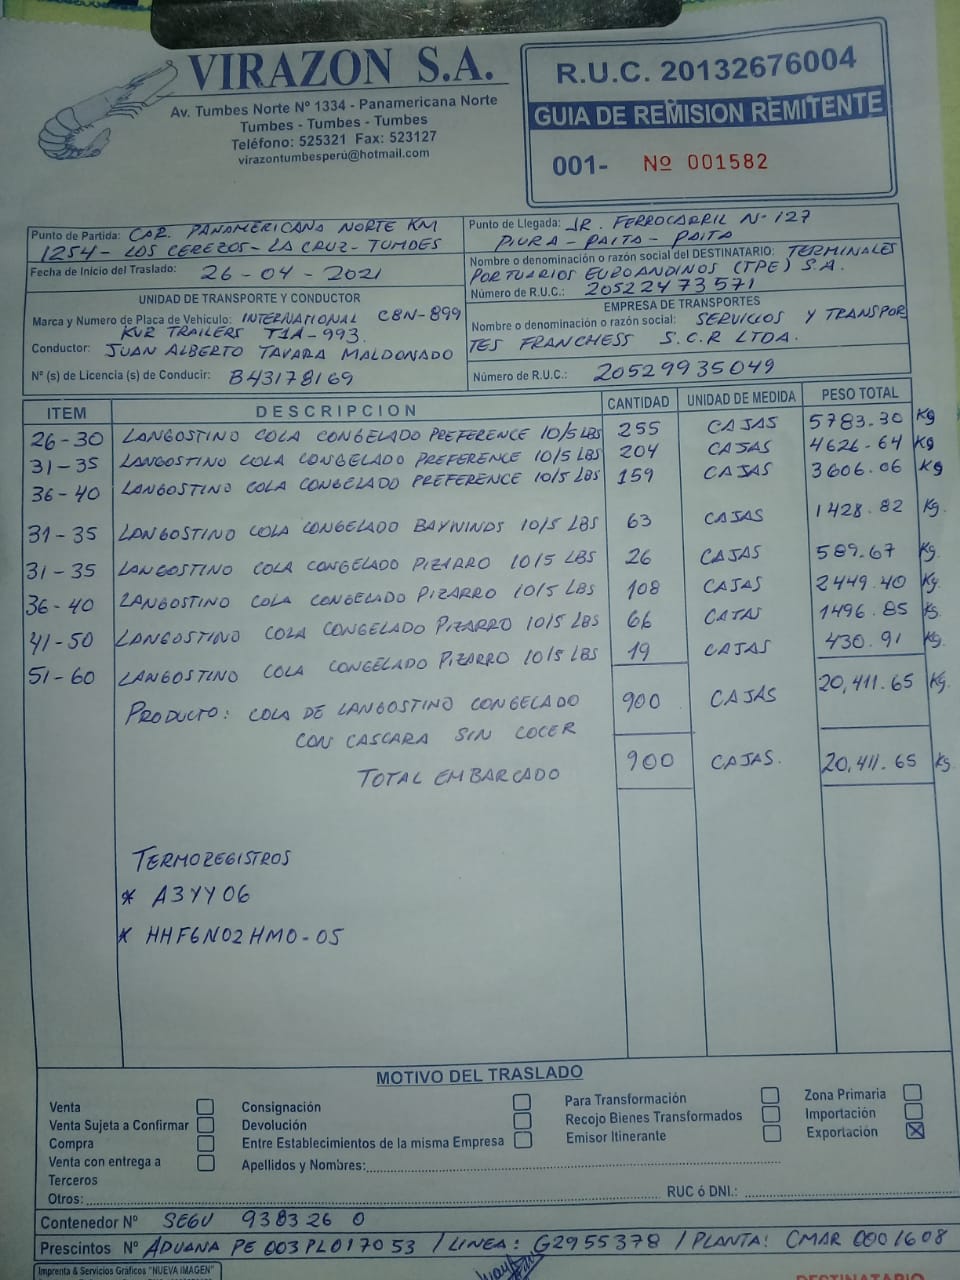 VIRAZON S.A.
Av. Tumbes Norte Nº 1334 - Panamericana Norte
Tumbes - Tumbes - Tumbes
Teléfono: 525321 Fax: 523127
virazontumbesperú@hotmail.com
R.U.C. 20132676004
GUIA DE REMISION REMITENTE
001- Nº 001582
Punto de Partida: CAR. PANAMERICANA NORTE KM
1254 - LOS CEREZOS - LA CRUZ - TUMBES
Fecha de Inicio del Traslado: 26 - 04 - 2021
UNIDAD DE TRANSPORTE Y CONDUCTOR
Marca y Numero de Placa de Vehículo: INTERNATIONAL C8N-899
KVR TRAILERS T1A-993.
Conductor: JUAN ALBERTO TAVARA MALDONADO
Nº (s) de Licencia (s) de Conducir: B43178169
Punto de Llegada: JR. FERROCARRIL Nº 127
PIURA - PAITA - PAITA
Nombre o denominación o razón social del DESTINATARIO: TERMINALES
PORTUARIOS EUROANDINOS (TPE) S.A.
Número de R.U.C.: 20522473571
EMPRESA DE TRANSPORTES
Nombre o denominación o razón social: SERVICIOS Y TRANSPOR
TES FRANCHESS S.C.R LTDA.
Número de R.U.C.: 20529935049
ITEM DESCRIPCION CANTIDAD UNIDAD DE MEDIDA PESO TOTAL
26-30 LANGOSTINO COLA CONGELADO PREFERENCE 10/5 LBS 255 CAJAS 5783.30 Kg
31-35 LANGOSTINO COLA CONGELADO PREFERENCE 10/5 LBS 204 CAJAS 4626.64 Kg
36-40 LANGOSTINO COLA CONGELADO PREFERENCE 10/5 LBS 159 CAJAS 3606.06 Kg
31-35 LANGOSTINO COLA CONGELADO BAYWINDS 10/5 LBS 63 CAJAS 1428.82 Kg.
31-35 LANGOSTINO COLA CONGELADO PIZARRO 10/5 LBS 26 CAJAS 589.67 Kg.
36-40 LANGOSTINO COLA CONGELADO PIZARRO 10/5 LBS 108 CAJAS 2449.40 Kg.
41-50 LANGOSTINO COLA CONGELADO PIZARRO 10/5 LBS 66 CAJAS 1496.85 Kg.
51-60 LANGOSTINO COLA CONGELADO PIZARRO 10/5 LBS 19 CAJAS 430.91 Kg.
PRODUCTO: COLA DE LANGOSTINO CONGELADO 900 CAJAS 20,411.65 Kg.
CON CASCARA SIN COCER
TOTAL EMBARCADO 900 CAJAS. 20,411.65 Kg
TERMOREGISTROS
* A3YY06
* HHF6N02HM0-05
MOTIVO DEL TRASLADO
Venta
Venta Sujeta a Confirmar
Compra
Venta con entrega a
Terceros
Consignación
Devolución
Entre Establecimientos de la misma Empresa
Para Transformación
Recojo Bienes Transformados
Emisor Itinerante
Zona Primaria
Importación
Exportación X
Apellidos y Nombres:
Otros: RUC ó DNI.:
Contenedor Nº SEGU 938326 0
Prescintos Nº ADUANA PE 003PL017053 / LINEA: G2955378 / PLANTA: CMAR 0001608
Imprenta & Servicios Gráficos "NUEVA IMAGEN"
DESTINATARIO